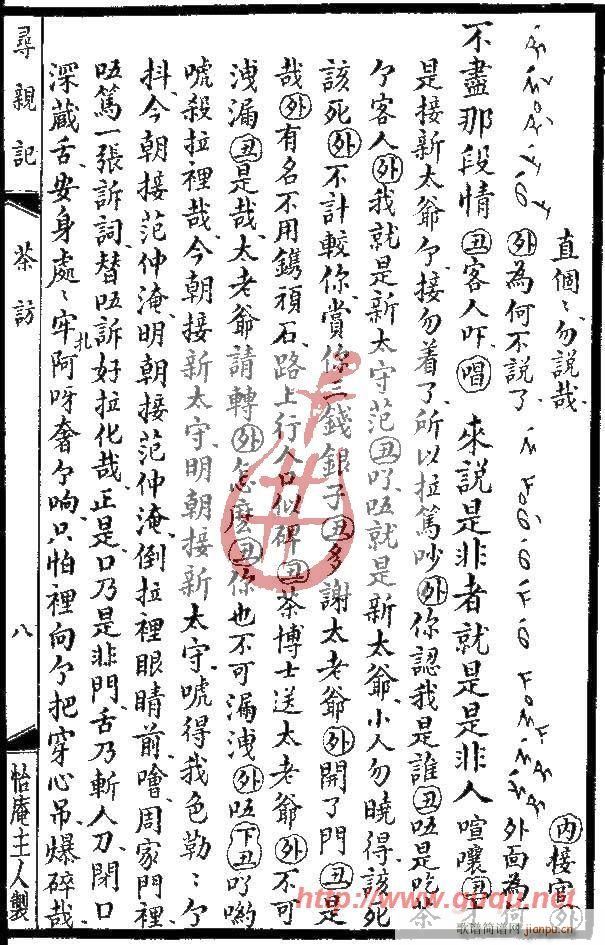 直個〻勿說哉 內接官
外為何不說了 外面為
不盡那段情 丑客人吓 唱 來說是非者就是是非人 喧嚷 丑
是接新太爺亇接勿着了所以拉篤吵 外 你認我是誰 丑 唔是吃
亇客人 外 我就是新太守范 丑 吖唔就是新太爺小人勿曉得該死
該死 外 不計較你賞你三錢銀子 丑 多謝太老爺 外 開了門 丑 是
哉 外 有名不用鐫頑石路上行人口似碑 丑 茶博士送太老爺 外 不可
洩漏 丑 是哉太老爺請轉 外 怎麼 丑 你也不可漏洩 外 唔 下丑 吖喲
唬殺拉裡哉今朝接新太守明朝接新太守唬得我色勒〻亇
抖今朝接范仲淹明朝接范仲淹倒拉裡眼睛前噲周家門裡
唔篤一張訴詞替唔訴好拉化哉正是口乃是非門舌乃斬人刀閉口
深藏舌安身處〻牢扎阿呀奢亇响只怕裡向亇把穿心吊爆碎哉
尋親記 茶訪 八 怡庵主人製
http://www.guqu.net
歌谱简谱网 jianpu.cn